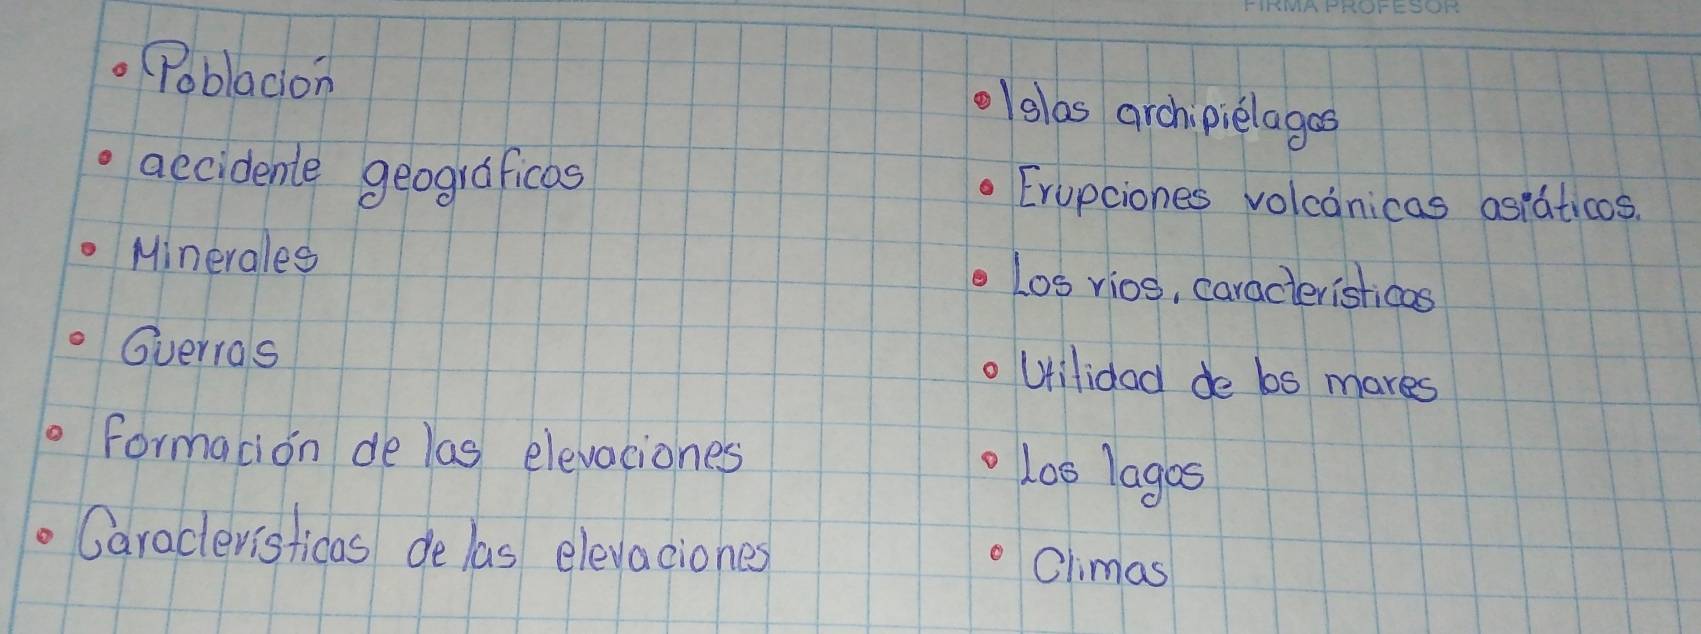 FIRMA PROFESOR
• Población
• accidente geográficos
• Minerales
• Guerras
• Formación de las elevaciones
• Características de las elevaciones
• Islas archipiélagos
• Erupciones volcánicas asiáticos.
• Los rios, características
• Utilidad de los mares
• Los lagos
• Climas